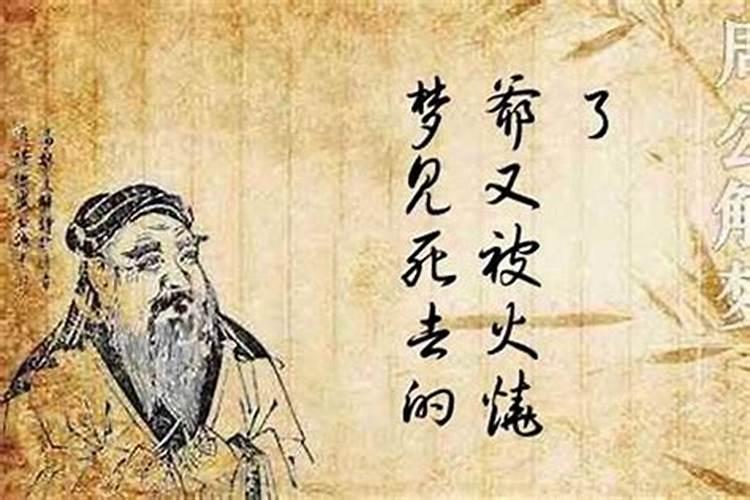 周公解梦
梦见死去的
爷又被火烧
了